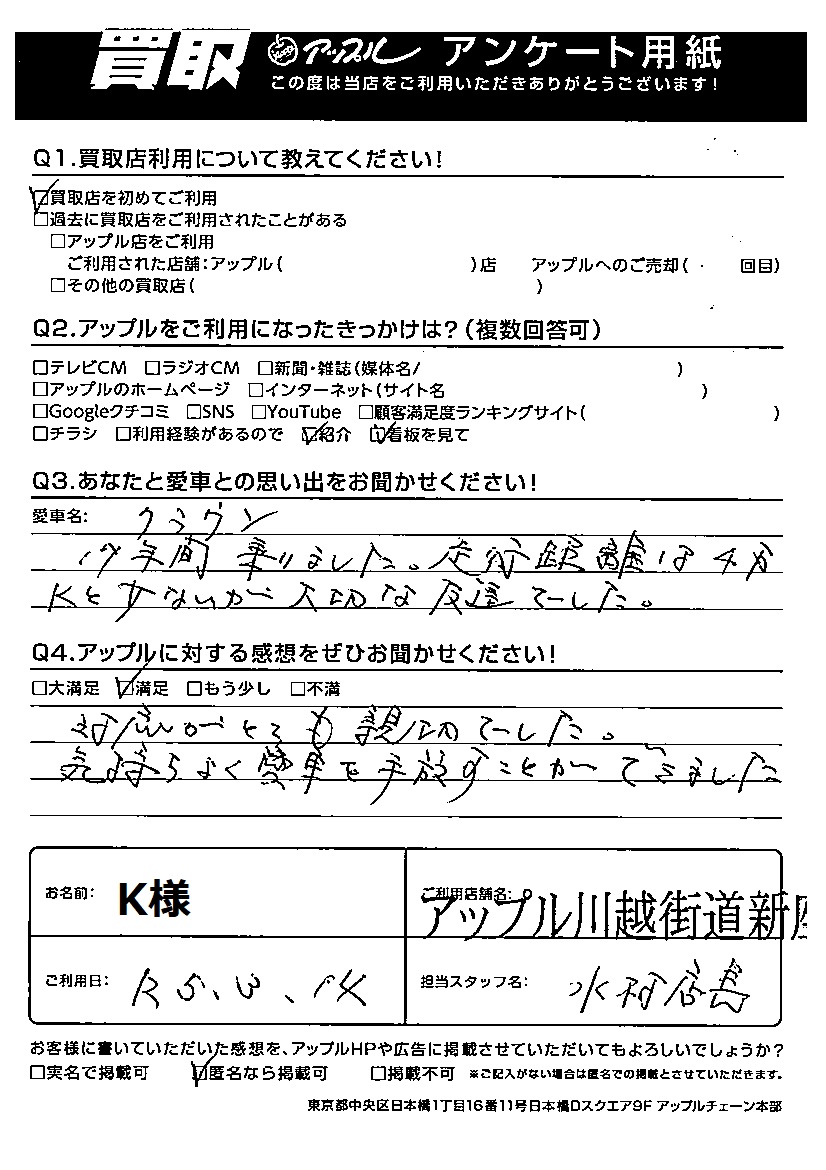 買取 アップル アンケート用紙
この度は当店をご利用いただきありがとうございます！
Q1.買取店利用について教えてください！
☑買取店を初めてご利用
□過去に買取店をご利用されたことがある
□アップル店をご利用
ご利用された店舗：アップル（ ）店 アップルへのご売却（ 回目）
□その他の買取店（ ）
Q2.アップルをご利用になったきっかけは？（複数回答可）
□テレビCM □ラジオCM □新聞・雑誌（媒体名/ ）
□アップルのホームページ □インターネット（サイト名 ）
□Googleクチコミ □SNS □YouTube □顧客満足度ランキングサイト（ ）
□チラシ □利用経験があるので ☑紹介 ☑看板を見て
Q3.あなたと愛車との思い出をお聞かせください！
愛車名： クラウン
年間乗りました。走行距離は4万
Kと少ないが大切な友達でした。
Q4.アップルに対する感想をぜひお聞かせください！
□大満足 ☑満足 □もう少し □不満
対応がとても親切でした。
気持ちよく愛車を手放すことができました
お名前： K様 ご利用店舗名：
アップル川越街道新座
ご利用日： R5、3、14 担当スタッフ名： 水村店長
お客様に書いていただいた感想を、アップルHPや広告に掲載させていただいてもよろしいでしょうか？
□実名で掲載可 ☑匿名なら掲載可 □掲載不可 ※ご記入がない場合は匿名での掲載とさせていただきます。
東京都中央区日本橋1丁目16番11号日本橋Dスクエア9F アップルチェーン本部